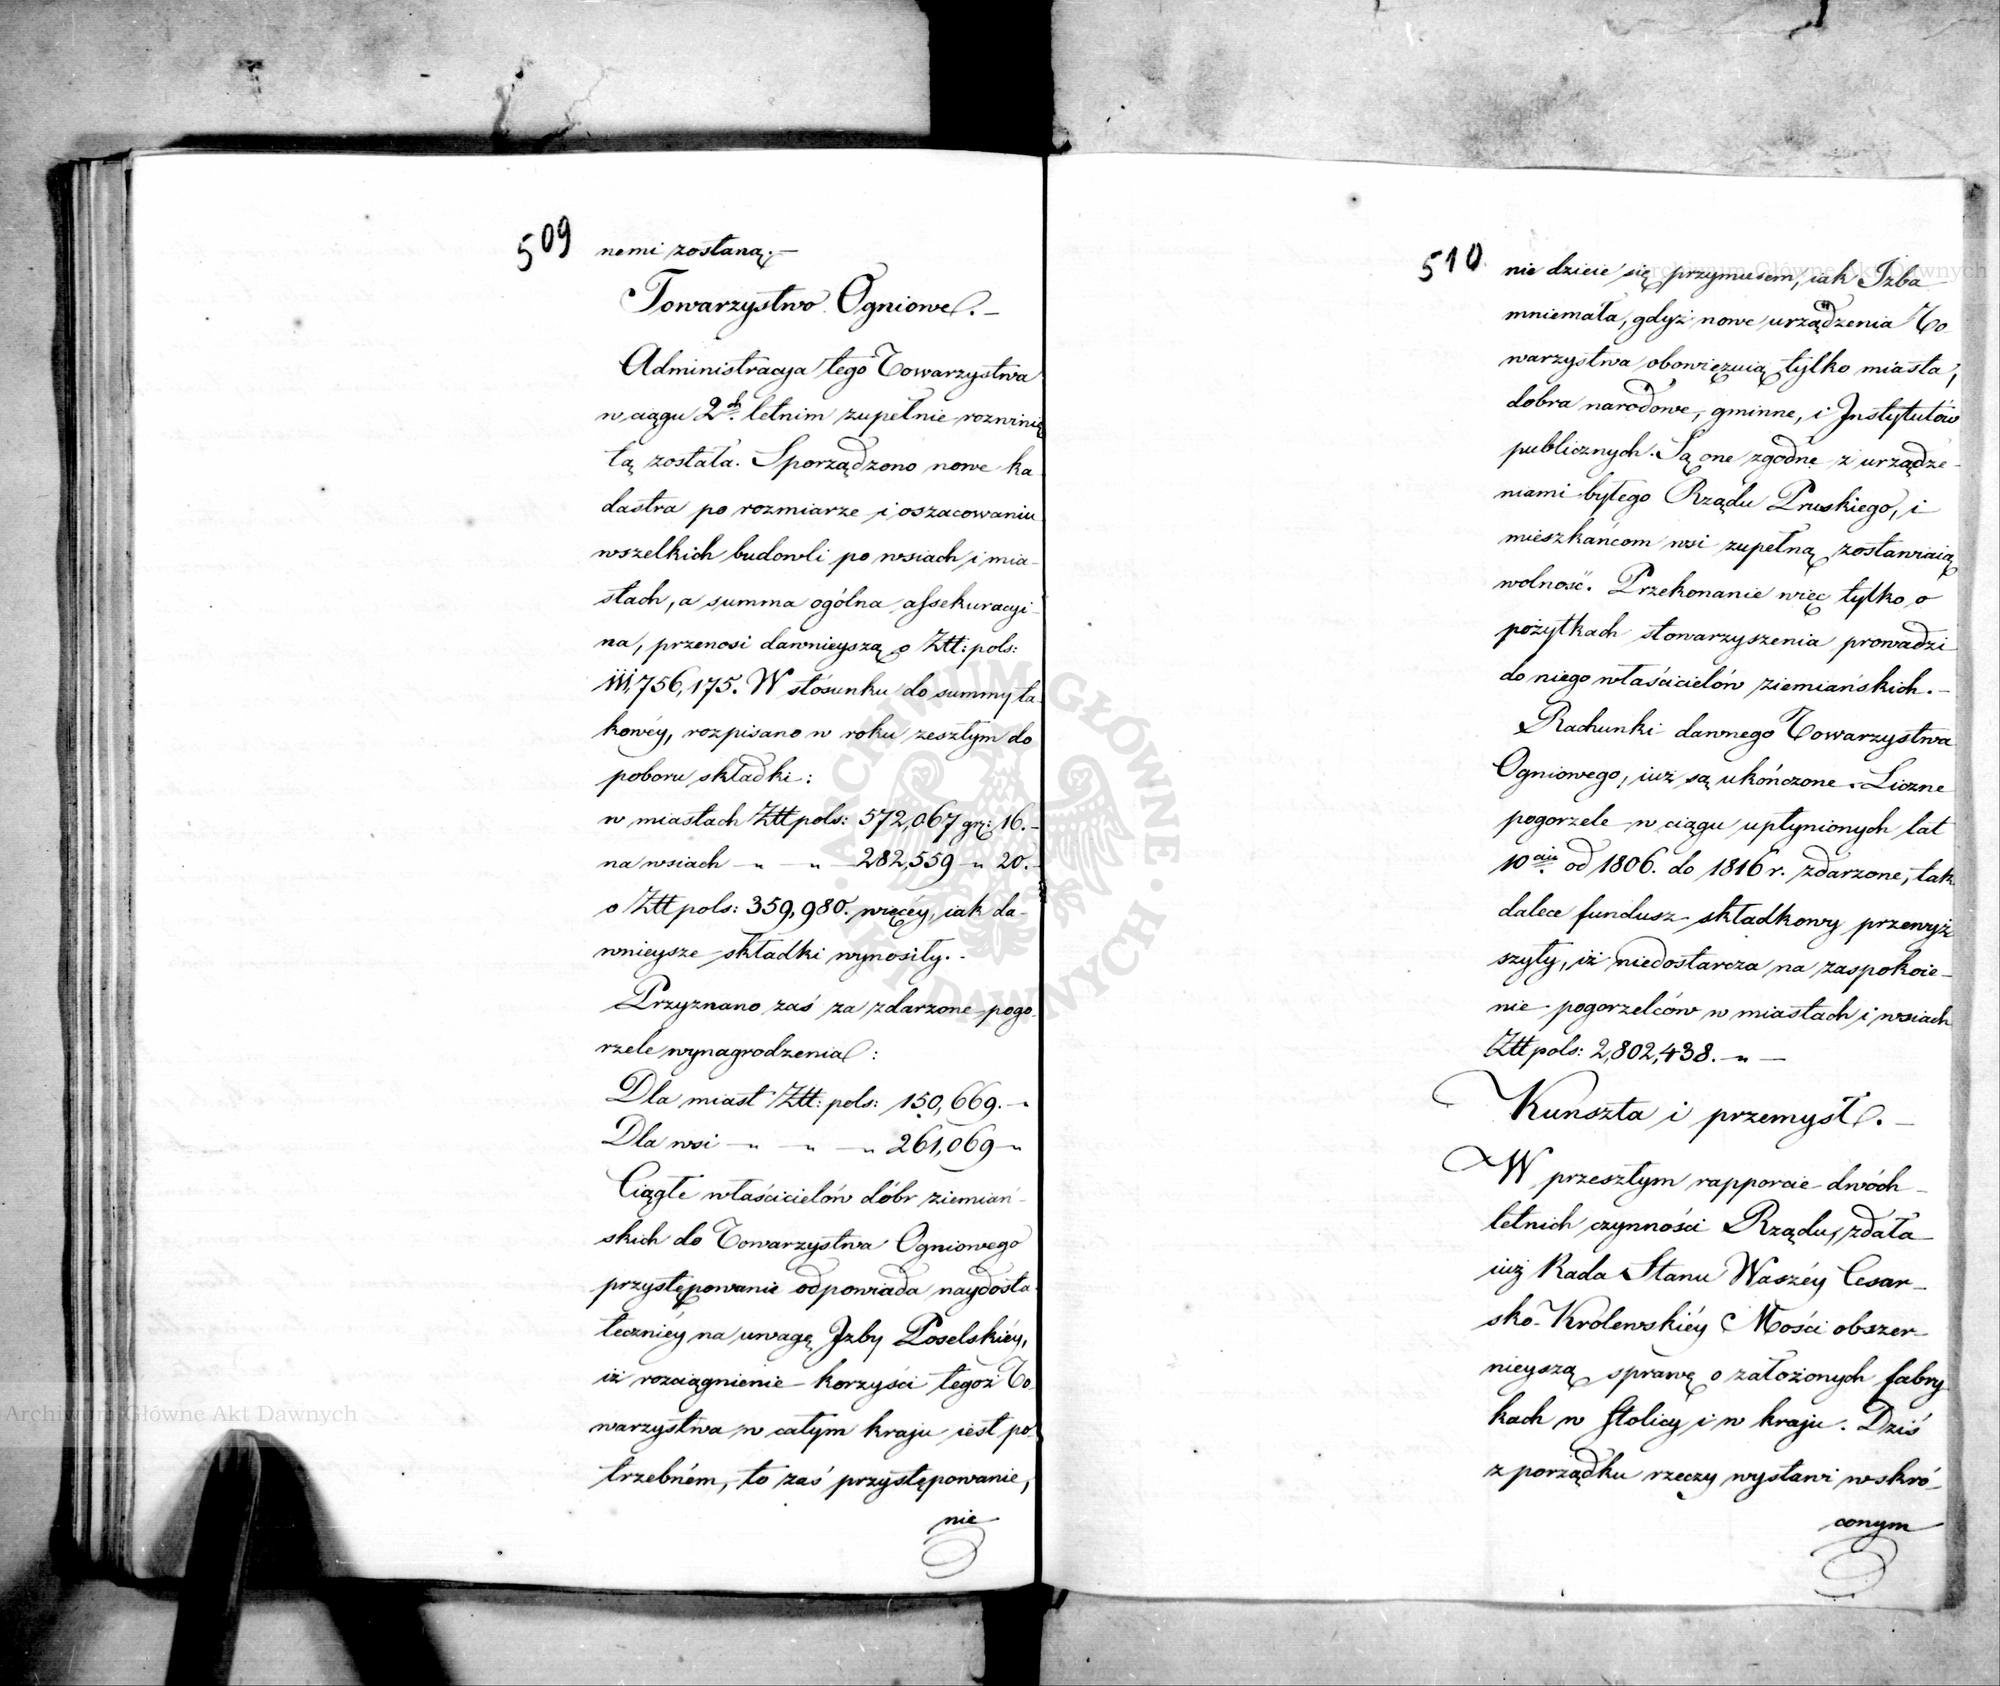 509
nemi zostaną.—
Towarzystwo Ogniowe.—
Administracya tego Towarzystwa
w ciągu 2ch. letnim zupełnie rozwinię
tą została. Sporządzono nowe ka
dastra po rozmiarze i oszacowaniu
wszelkich budowli po wsiach i mia-
stach, a summa ogólna assekuracyi-
na, przenosi dawnieyszą o Złł: pols:
111,756,175. W stósunku do summy ta
kowéy, rozpisano w roku zeszłym do
poboru składki:
w miastach Złł pols: 572,067 gr: 16.—
na wsiach — „ — „ — 282,559 — „ 20.—
o Złł pols: 359,980. więcéy, iak da-
wnieysze składki wynosiły.-
Przyznano zaś za zdarzone pogo-
rzele wynagrodzenia:
Dla miast Złł: pols: 150,669.—„
Dla wsi — „ — „ — „ 261,069 — „
Ciągłe właścicielów dóbr ziemiań-
skich do Towarzystwa Ogniowego
przystępowanie odpowiada naydosta-
teczniéy na uwagę Jzby Poselskiéy,
iż rozciągnienie korzyści tegoż To-
warzystwa w całym kraju iest po-
trzebném, to zaś przystępowanie,
nie
510
nie dzieie się przymusem, iak Izba
mniemała, gdyż nowe urządzenia To
warzystwa obowięzuią tylko miasta,
dobra narodowe, gminne, i Jnstytutów
publicznych. Są one zgodne z urządze-
niami byłego Rządu Pruskiego, i
mieszkańcom wsi zupełną zostawiaią
wolność. Przekonanie więc tylko o
pożytkach stowarzyszenia prowadzi
do niego właścicielów ziemiańskich.—
Rachunki dawnego Towarzystwa
Ogniowego, iuż są ukończone. Liczne
pogorzele w ciągu upłynionych lat
10ciu od 1806. do 1816 r. zdarzone, tak
dalece fundusz składkowy przewyż
szyły, iż niedostarcza na zaspokoie-
nie pogorzelców w miastach i wsiach
Złł pols: 2,802,438. — „ —
Kunszta i przemysł.—
W przeszłym rapporcie dwóch-
letnich czynności Rządu, zdała
iuż Rada Stanu Waszéy Cesar-
sko-Krolewskiéy Mości obszer-
nieyszą sprawę o założonych fabry
kach w Stolicy i w kraju. Dziś
z porządku rzeczy wystawi w skró-
conym
ARCHIWUM GŁÓWNE AKT DAWNYCH
Archiwum Główne Akt Dawnych
Archiwum Główne Akt Dawnych